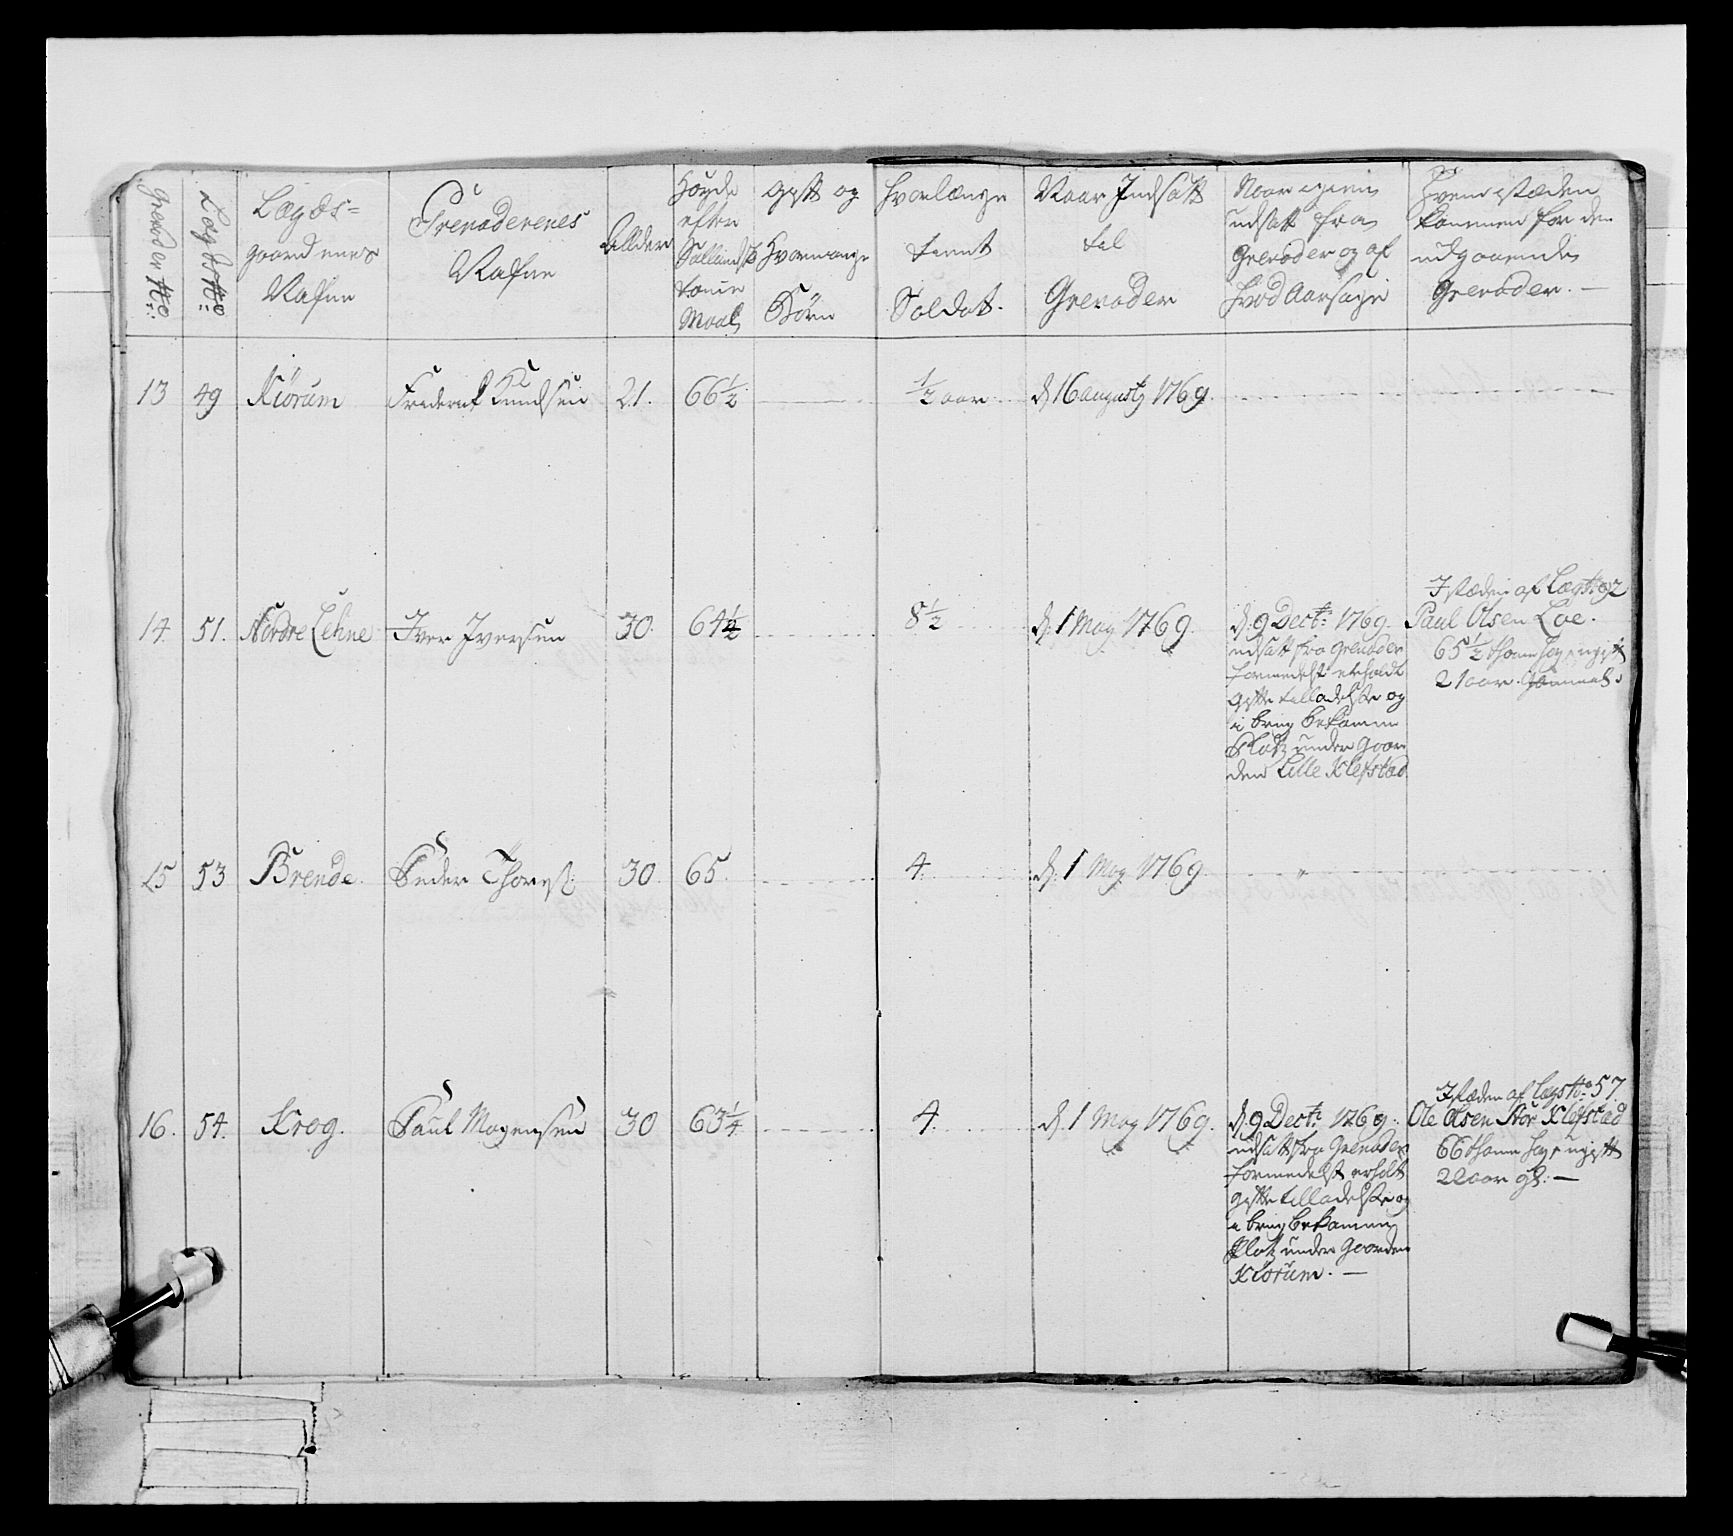 Grenader No:
Lægds No:
Lægds=
gaardenes
Nafne
Grenaderenes
Nafne
Allder
Høyde
efter
Sællands
tomme
Maal
Gift og
Hvormange
Børn
Hvorlænge
tient
Soldat.
Naar Indsatt
til
Grenader
Naar igien
udsatt fra
Grenader og af
hvad Aarsage
Hvem i stæden
kommen for den
udgaaende
Grenader. —
13 49 Kiørum Friderich Knudsen 21. 66½ ½ aar d: 16 augusty 1769.
14. 51. Nordre Lehne Iver Iversen 30. 64½ 8½ d: 1 May 1769.
d: 9 Dectr: 1769.
udsatt fra Grenader
formedelst erholdt
Gifte tilladelse og
i brug bekomme
Platz under Gaar
den Lille Klefstad
I stæden af Læg No: 92
Paul Olsen Loe.
65½ tomme høy, ugift
21 aar gammel.
15 53 Brende. Peder Thores: 30. 65. 4. d: 1 May 1769.
16. 54. Krog. Paul Mogensen 30 63¼ 4. d: 1 May 1769.
d: 9 Dectr: 1769.
udsatt fra Grenader
formedelst erholdt
Gifte tilladelse og
i brug bekomme
Platz under Gaarden
Kiørum. —
I stæden af Lægs No: 57.
Ole Olsen Stor Klefstad
66 tomme høy, ugift
22 aar gl: —